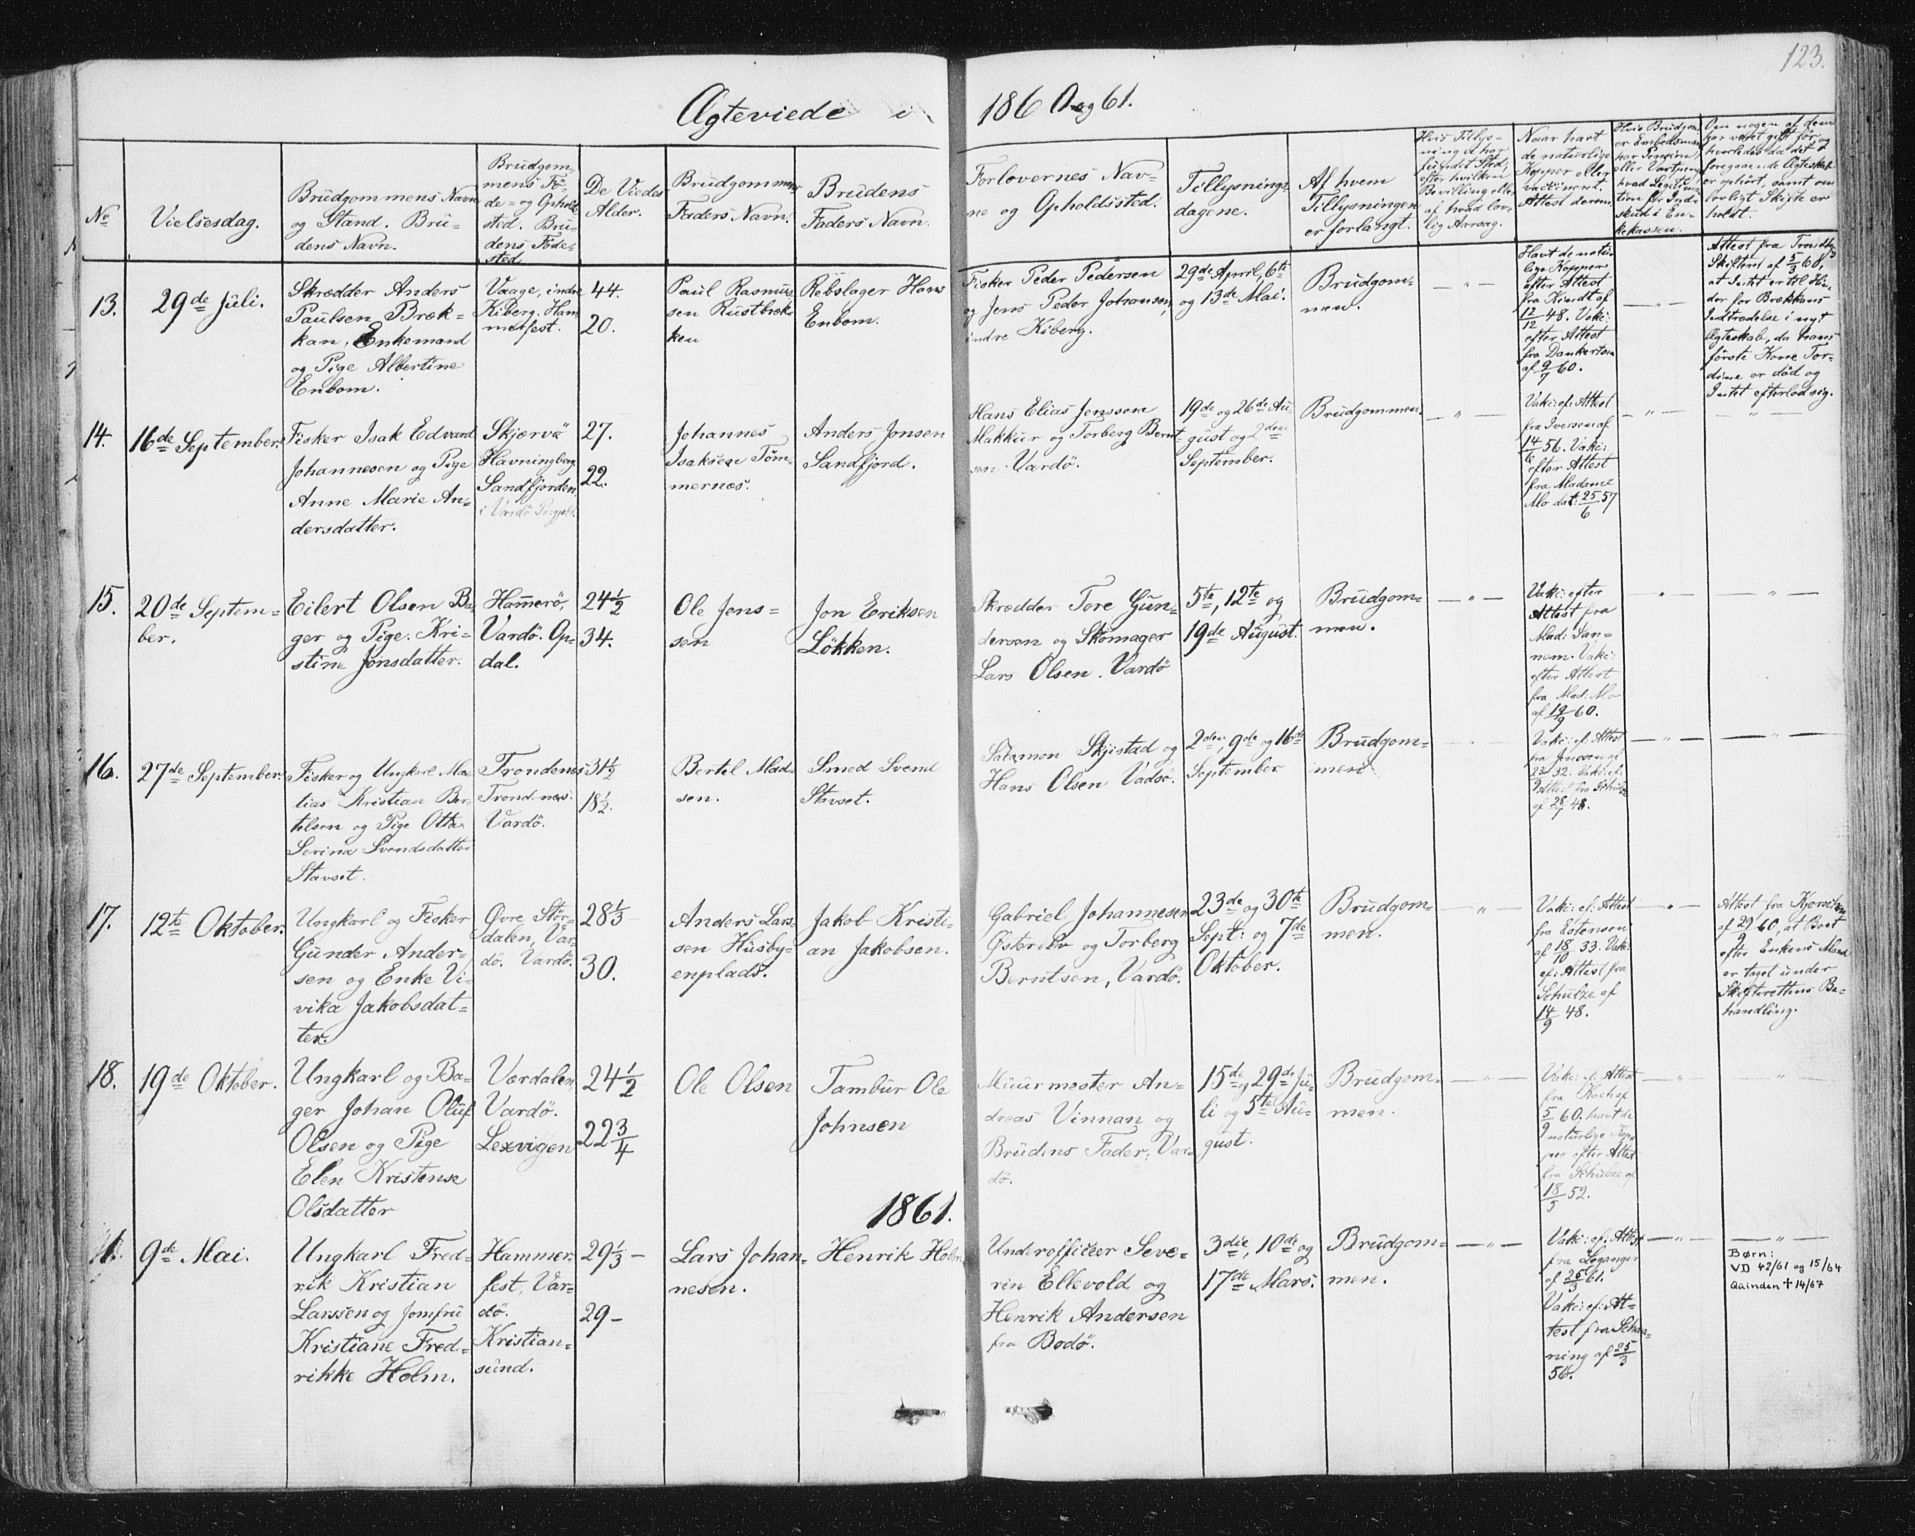 123.
Ægteviede i 1860 og 61.
No
Vielsesdag.
Brudgommens Navn
og Stand. Bru-
dens Navn.
Brudgom-
mens Fö-
de- og Ophold
sted. Bru-
dens Föde-
sted
De Viedes
Alder.
Brudgommens
Faders Navn.
Brudens
Faders Navn.
Forlovernes Nav-
ne og Opholdssted.
Tillysnings-
dagene.
Af hvem
Tillysningen
er forlangt.
Hvis Tillys-
ning ei har
fundet Sted,
efter hvilken
Bevilling eller
af hvad lov-
lig Aarsag.
Naar havt
de naturlige
Kopper eller
vaccineret.
Attest derom.
Hvis Brudgom.
er Embedsmand
har Pension,
eller Vartpenge
hvad Legitima-
tion for Ind-
skud i En-
kekassen.
Om nogen af dem
har været gift før, og
hvorledes da det
foregaaende Ægteskab
er ophørt, samt om
lovligt Skifte er
holdt.
13.
29de Juli.
Skrædder Anders
Paulsen Bræk-
kan, Enkemand
og Pige Albertine
Enbom.
Vaage, indre
Kiberg. Ham
merfest.
44.
20.
Paul Rasmus-
sen Rustbræk
ken
Rebslager Hans
Enbom.
Fisker Peder Pedersen
og Jens Peder Johansen,
indre Kiberg.
29de April, 6te
og 13de Mai.
Brudgom-
men.
— " —
Havt de natur-
lige Kopper
efter Attest
fra Kiandt af
12/12 48. Vakc:
efter Attest
fra Dankertsen
af 9/7 60.
— " —
Attest fra Trondhj.
Skifteret af 5/3 60,
at Intet er til Hin-
der for Brækkans
Indtrædelse i nyt
Ægteskab, da hans
første Kone Tor-
dine er død og
Intet efterlod sig.
14.
16de September.
Fisker Isak Edvard
Johannesen og Pige
Anne Marie An-
dersdatter.
Skjærvö
Havningberg
Sandfjorden
i Vardö Prgjeld.
27.
22.
Johannes
Isaksen Töm-
mernæs.
Anders Jonsen
Sandfjord.
Hans Elias Jenssen
Makkur og Torberg Bernt-
sen Vardö.
19de og 26de Au-
gust og 2den
September.
Brudgommen
— " —
Vakc: ef: Attest
fra Iversen af
14/6 56. Vakc:
efter Attest
fra Madame
Mo dat: 25/6 57
— " —
— " —
15.
20de Septem-
ber.
Eilert Olsen Ba-
ger og Pige. Kri-
stine Jonsdatter.
Hammerö,
Vardö. Op-
dal.
24 1/2
34.
Ole Jens-
sen
Jon Eriksen
Lökken.
Skrædder Tore Gun-
dersen og Skomager
Lars Olsen. Vardö
5te, 12te og
19de August.
Brudgom-
men.
— " —
Vakc: efter
Attest fra
Mad: San-
nem. Vakc:
efter Attest
fra Mad: Mo
af 19/9 60.
— " —
— " —
16.
27de September.
Fisker og Ungkarl Ma-
tias Kristian Ber-
telsen og Pige Otta
Serina Svendsdatter
Stavset.
Trondenes
Trondenæs.
Vardö.
31 1/2
18 1/2.
Bertel Mad-
sen.
Smed Svend
Stavset.
Salamon Skjistad og
Hans Olsen Vadsö.
2den, 9de og 16de
September
Brudgom-
men
— " —
Vakc: ef: Attest
— " —
— " —
17.
12te Oktober.
Ungkarl og Fisker
Gunder Ander-
sen og Enke Vi-
vika Jakobsdat-
ter.
Övre Stör-
dalen, Var-
dö. Vardö.
28 1/3 —
30.
Anders Lars-
sen Husby-
enplads.
Jakob Kristi-
an Jakobsen.
Gabriel Johannesen
Østerelv og Torberg
Berntsen, Vardö.
23de og 30te
Sept: og 7de
Oktober.
Brudgom-
men.
— " —
Vakc: ef: Attest
fra Estensen
af 18/10 33. Vak:
ef: Attest fra
Schulze af
14/9 48.
— " —
Attest fra
af 29/9 60, at Boet
efter Enkens Mand
er taget under
Skifterettens Be-
handling.
18.
19de Oktober.
Ungkarl og Ba-
ger Johan Oluf
Olsen og Pige
Elen Kristense
Olsdatter
Værdalen
Vardö.
Lexvigen
24 1/2
22 3/4
Ole Olsen
Tambur Ole
Johnsen
Muurmester An-
dreas Vinnan og
Brudens Fader, Var-
dö.
15de og 29de Ju-
li og 5te Au-
gust.
Brudgom-
men.
— " —
Vakc: ef: Attest
fra Koch af
5/9 60. havt de
naturlige Kop-
per efter Attest
fra Schulze af
18/5 52.
— " —
— " —
1861.
1.
9de Mai.
Ungkarl Fred-
rik Kristian
Larssen og Jomfru
Kristiane Fred-
rikke Holm.
Hammer-
fest, Var-
dö.
Kristian-
sund.
29 1/3 —
29 —
Lars Johan-
nesen.
Henrik Holm
Underofficer Seve-
rin Ellevold og
Henrik Andersen
fra Bodö.
3die, 10de og
17de Mars.
Brudgom-
men.
— " —
Vakc: ef: Attest
fra Leganger
af 25/3 61.
Vakc: ef: At-
test fra Schan-
ning af 25/3
56.
— " —
— " —
Børn:
VD 42/61 og 15/64
Qainden † 14/67